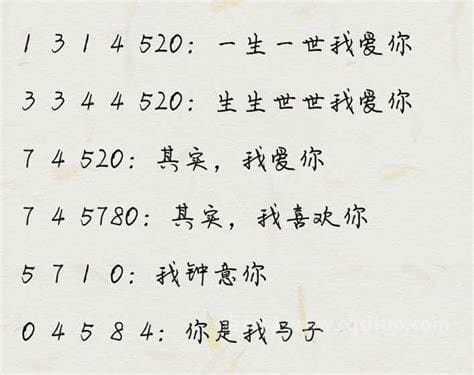 1 3 1 4 520: 一生一世我爱你
3 3 4 4 520: 生生世世我爱你
7 4 520: 其实，我爱你
7 4 5780: 其实，我喜欢你
5 7 1 0: 我钟意你
0 4 5 8 4: 你是我马子